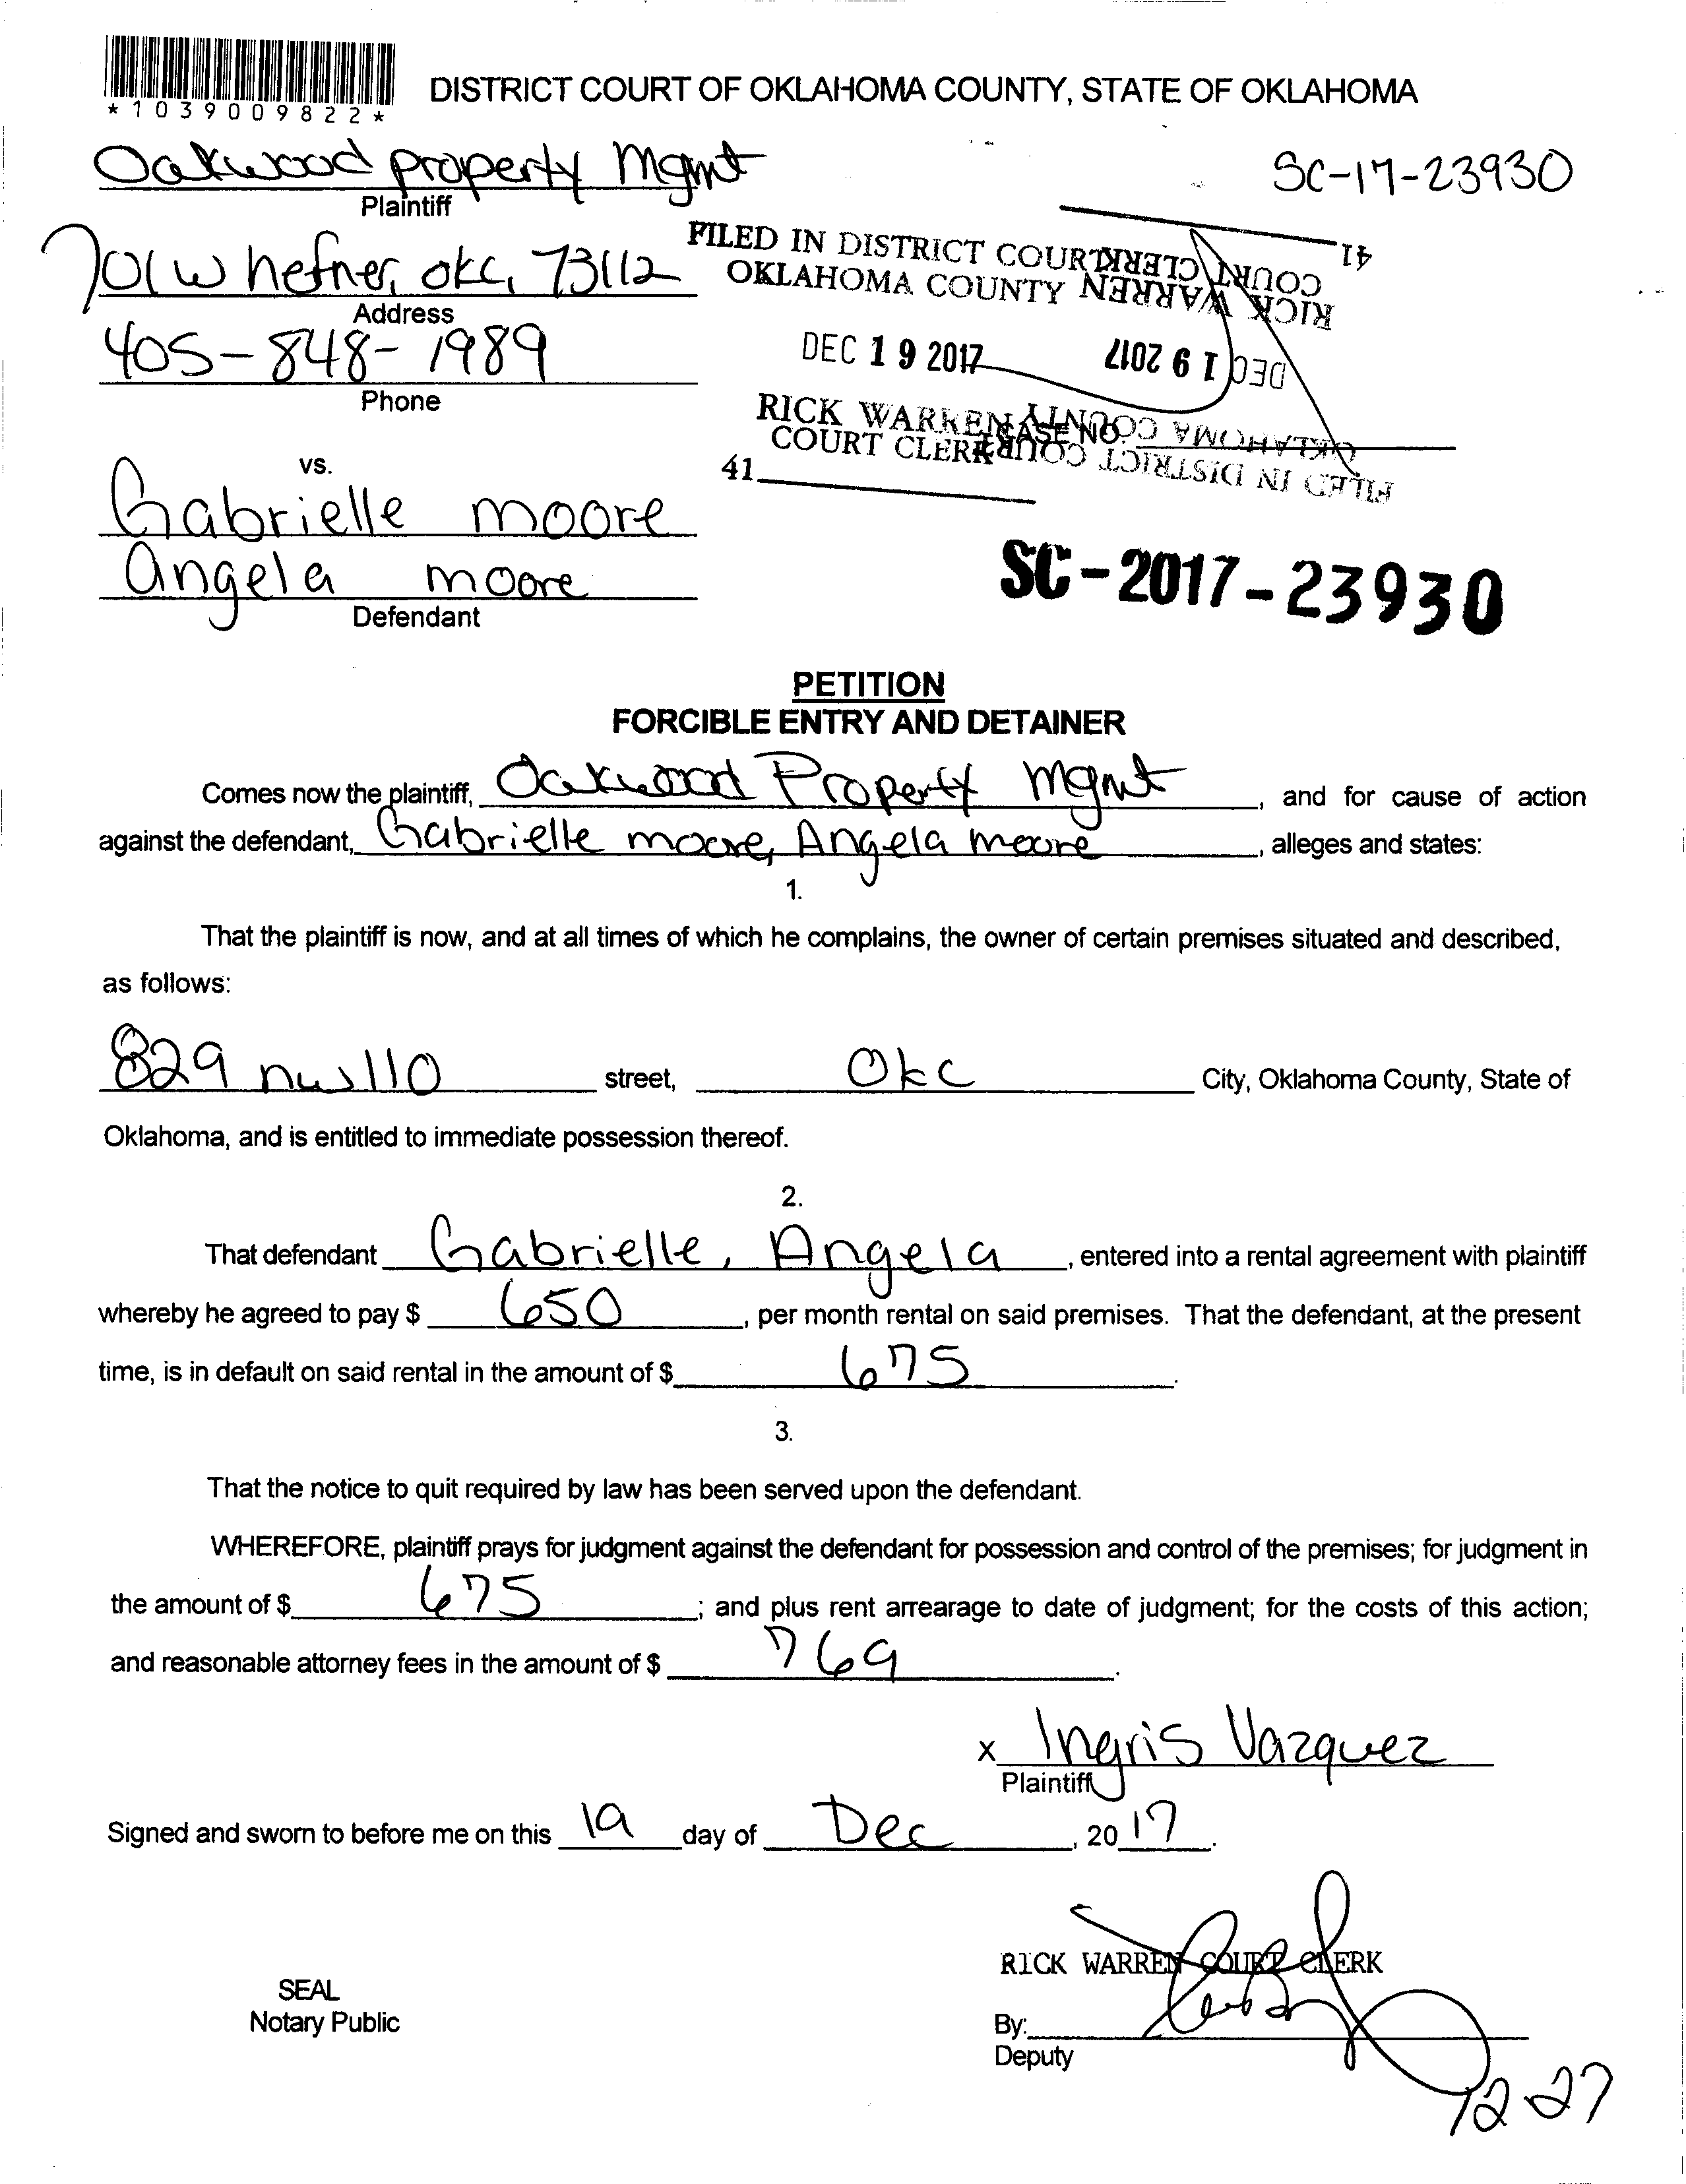 *1039009822*
DISTRICT COURT OF OKLAHOMA COUNTY, STATE OF OKLAHOMA
Oakwood property Mgmt
SC-17-23930
Plaintiff
701 W hefner, okc, 73112
Address
405-848-1989
Phone
FILED IN DISTRICT COURT
OKLAHOMA COUNTY
DEC 19 2017
RICK WARREN
COURT CLERK
41
FILED IN DISTRICT COURT
OKLAHOMA COUNTY
DEC 19 2017
RICK WARREN
COURT CLERK
41
CASE NO.
vs.
Gabrielle moore
angela moore
Defendant
SC-2017-23930
PETITION
FORCIBLE ENTRY AND DETAINER
Comes now the plaintiff, Oakwood Property Mgmt, and for cause of action
against the defendant, Gabrielle moore, Angela moore, alleges and states:
1.
That the plaintiff is now, and at all times of which he complains, the owner of certain premises situated and described,
as follows:
829 nw 110 street, Okc City, Oklahoma County, State of
Oklahoma, and is entitled to immediate possession thereof.
2.
That defendant Gabrielle, Angela, entered into a rental agreement with plaintiff
whereby he agreed to pay $ 650, per month rental on said premises. That the defendant, at the present
time, is in default on said rental in the amount of $ 675.
3.
That the notice to quit required by law has been served upon the defendant.
WHEREFORE, plaintiff prays for judgment against the defendant for possession and control of the premises; for judgment in
the amount of $ 675; and plus rent arrearage to date of judgment; for the costs of this action;
and reasonable attorney fees in the amount of $ 769.
x Ingris Vazquez
Plaintiff
Signed and sworn to before me on this 19 day of Dec, 2017.
RICK WARREN COURT CLERK
SEAL
Notary Public
By:
Deputy
12-27